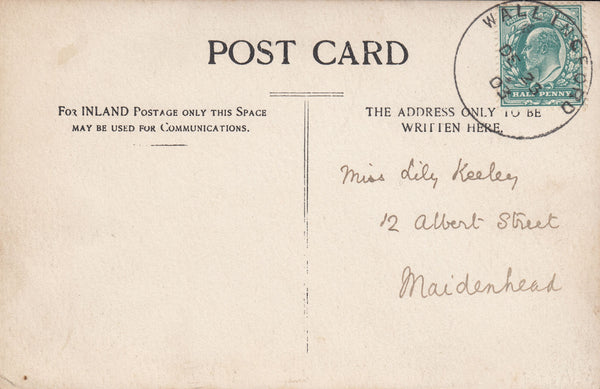 POST CARD
WALLINGFORD
DE 25
03
HALFPENNY
FOR INLAND POSTAGE ONLY THIS SPACE
MAY BE USED FOR COMMUNICATIONS.
THE ADDRESS ONLY TO BE
WRITTEN HERE.
Miss Lily Keeley
12 Albert Street
Maidenhead